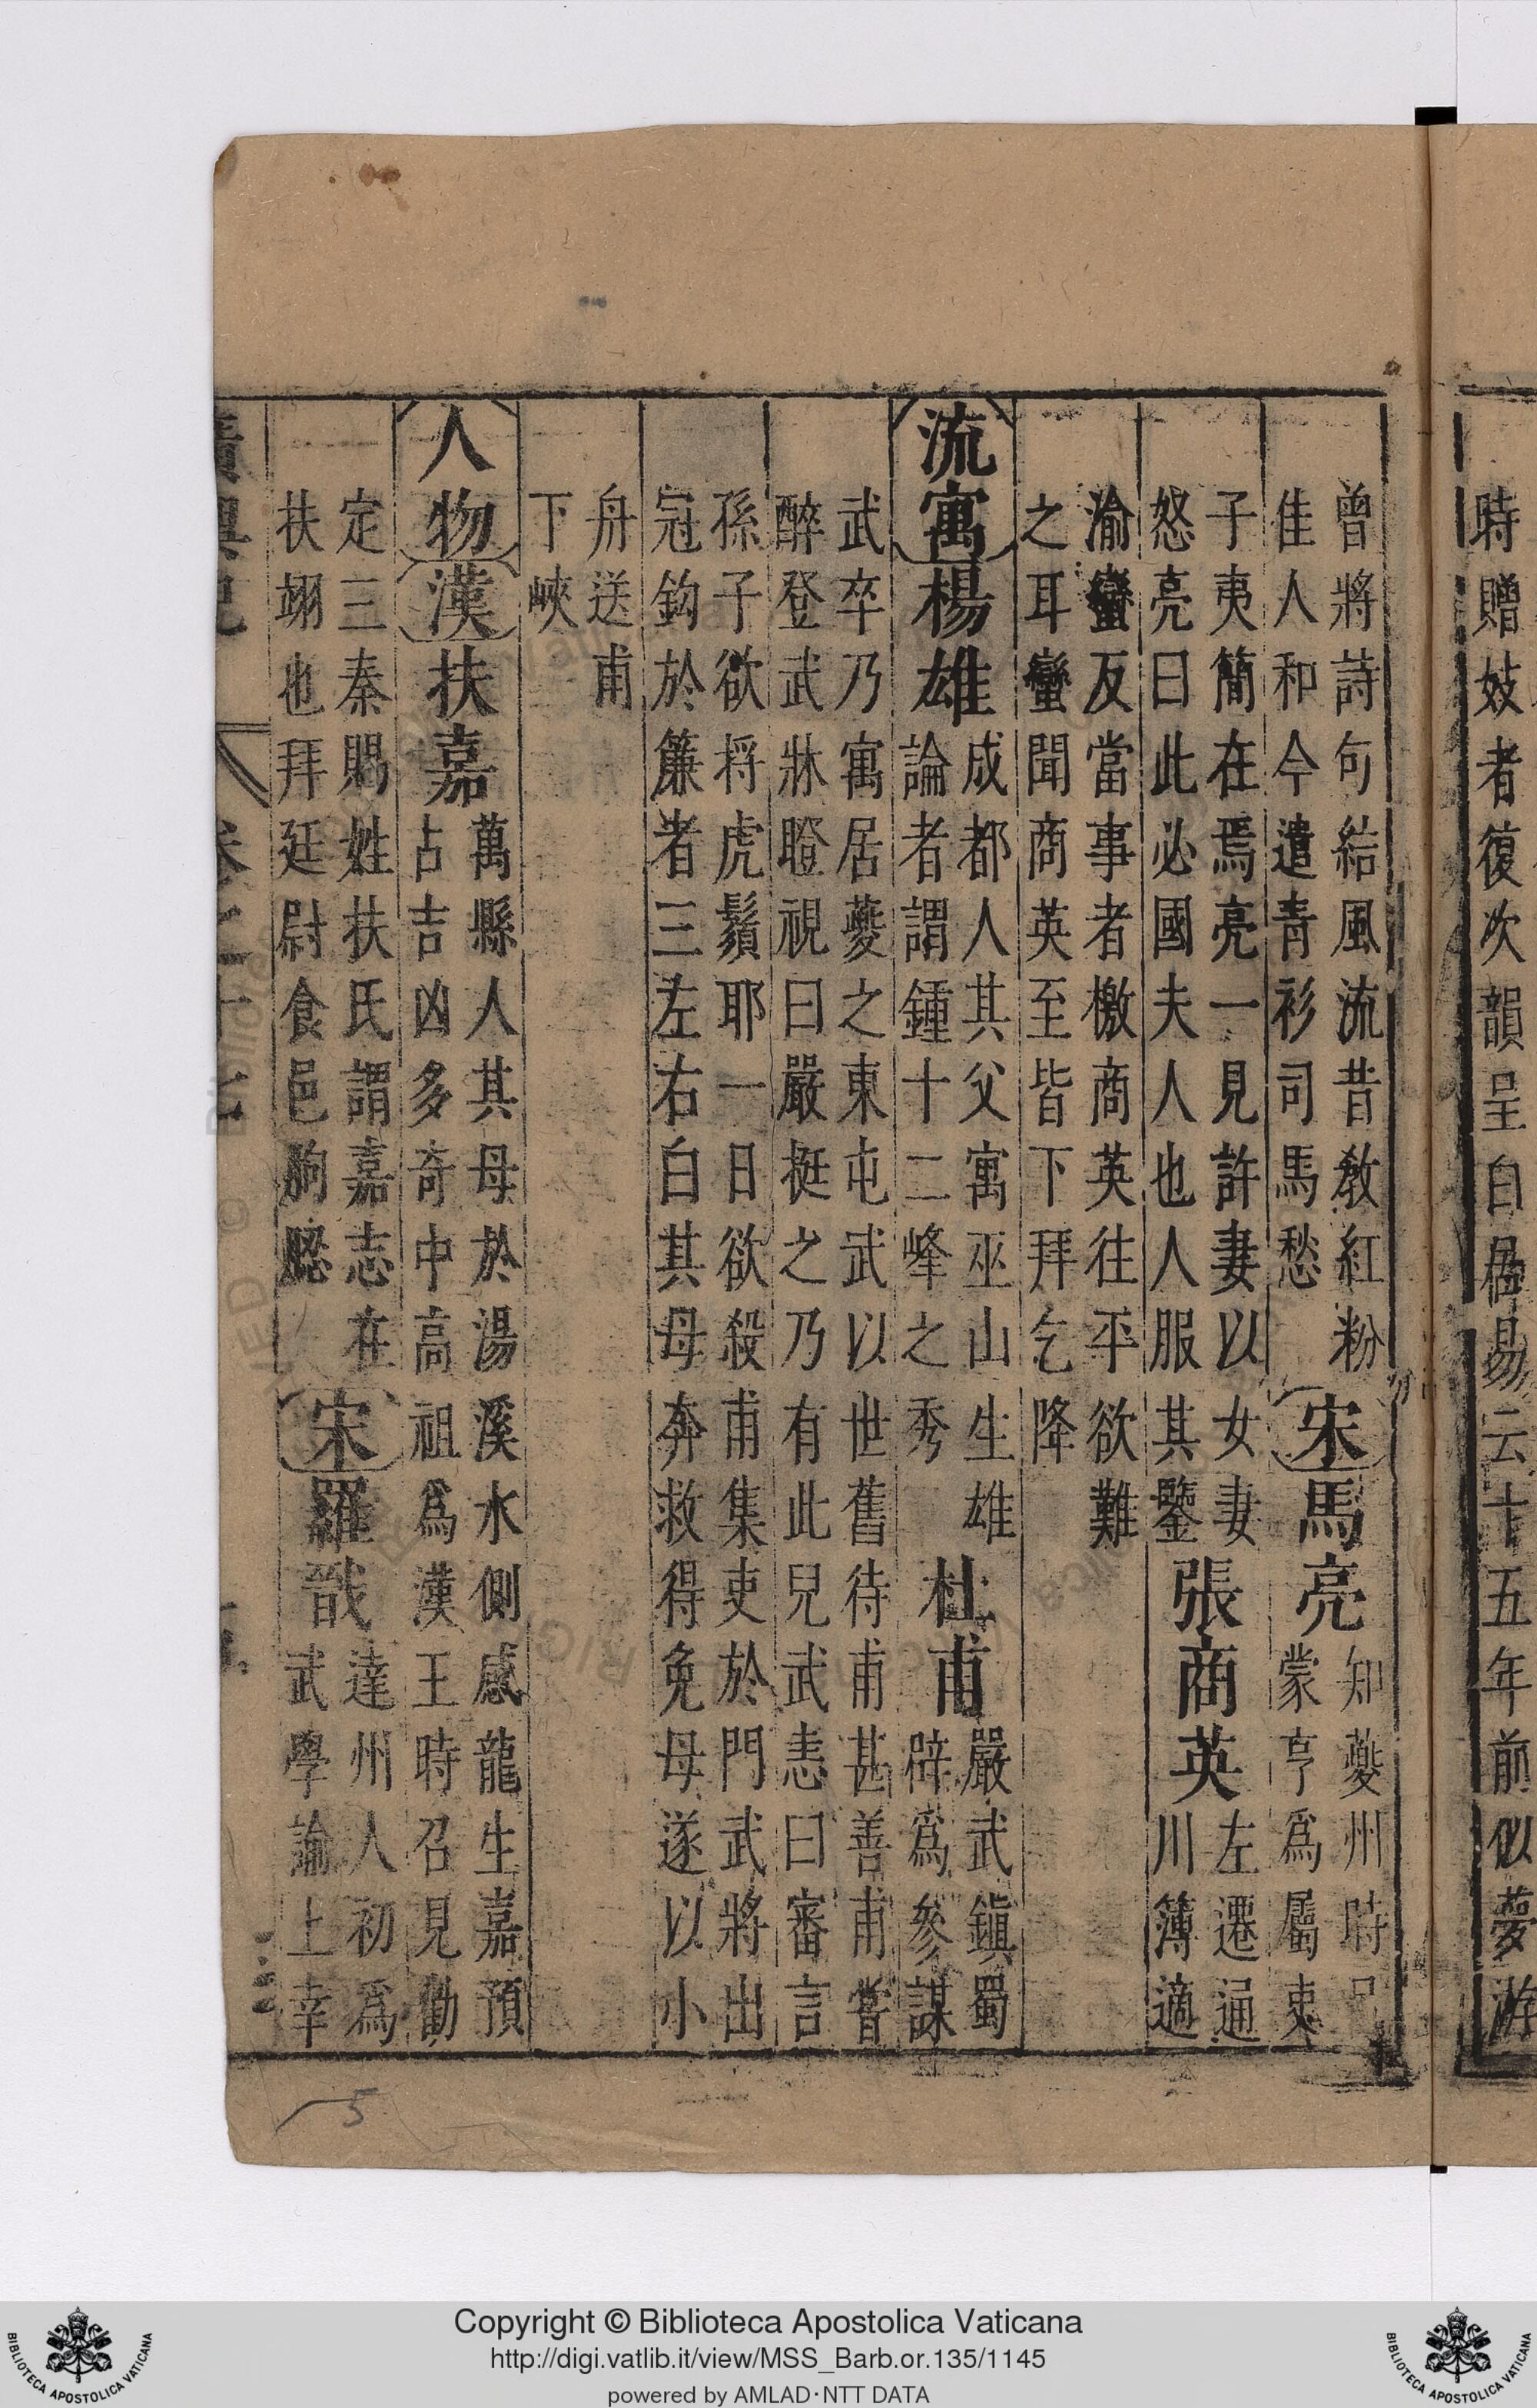 時贈妓者復次韻呈自居易云十五年前似夢游
曾將詩句結風流昔教紅粉
佳人和今遣青衫司馬愁
宋馬亮
知夔州時呂
蒙亨爲屬吏
子夷簡在焉亮一見許妻以女妻
怒亮曰此必國夫人也人服其鑒
張商英
左遷通
川簿適
渝蠻反當事者檄商英往平欲難
之耳蠻聞商英至皆下拜乞降
流寓楊雄
成都人其父寓巫山生雄
論者謂鍾十二峰之秀
杜甫
嚴武鎮蜀
辟爲參謀
武卒乃寓居夔之東屯武以世舊待甫甚善甫嘗
醉登武牀瞪視曰嚴挺之乃有此兒武恚曰審言
孫子欲捋虎鬚耶一日欲殺甫集吏於門武將出
冠鈎於簾者三左右白其母奔救得免母遂以小
舟送甫
下峽
人物漢扶嘉
萬縣人其母於湯溪水側感龍生嘉預
占吉凶多奇中高祖爲漢王時召見勸
定三秦賜姓扶氏謂嘉志在
扶翊也拜廷尉食邑朐䏰
宋羅戠
達州人初爲
武學諭上幸
5
Copyright © Biblioteca Apostolica Vaticana
http://digi.vatlib.it/view/MSS_Barb.or.135/1145
powered by AMLAD・NTT DATA
BIBLIOTECA APOSTOLICA VATICANA
BIBLIOTECA APOSTOLICA VATICANA